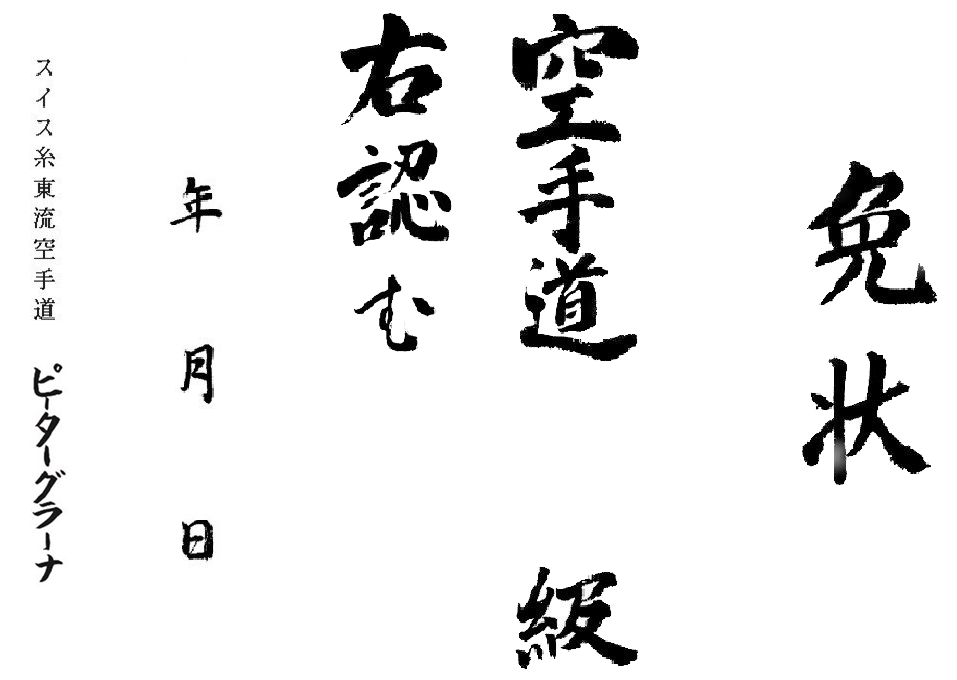 免状
空手道 級
右認む
年 月 日
スイス糸東流空手道 ピーターグラーナ